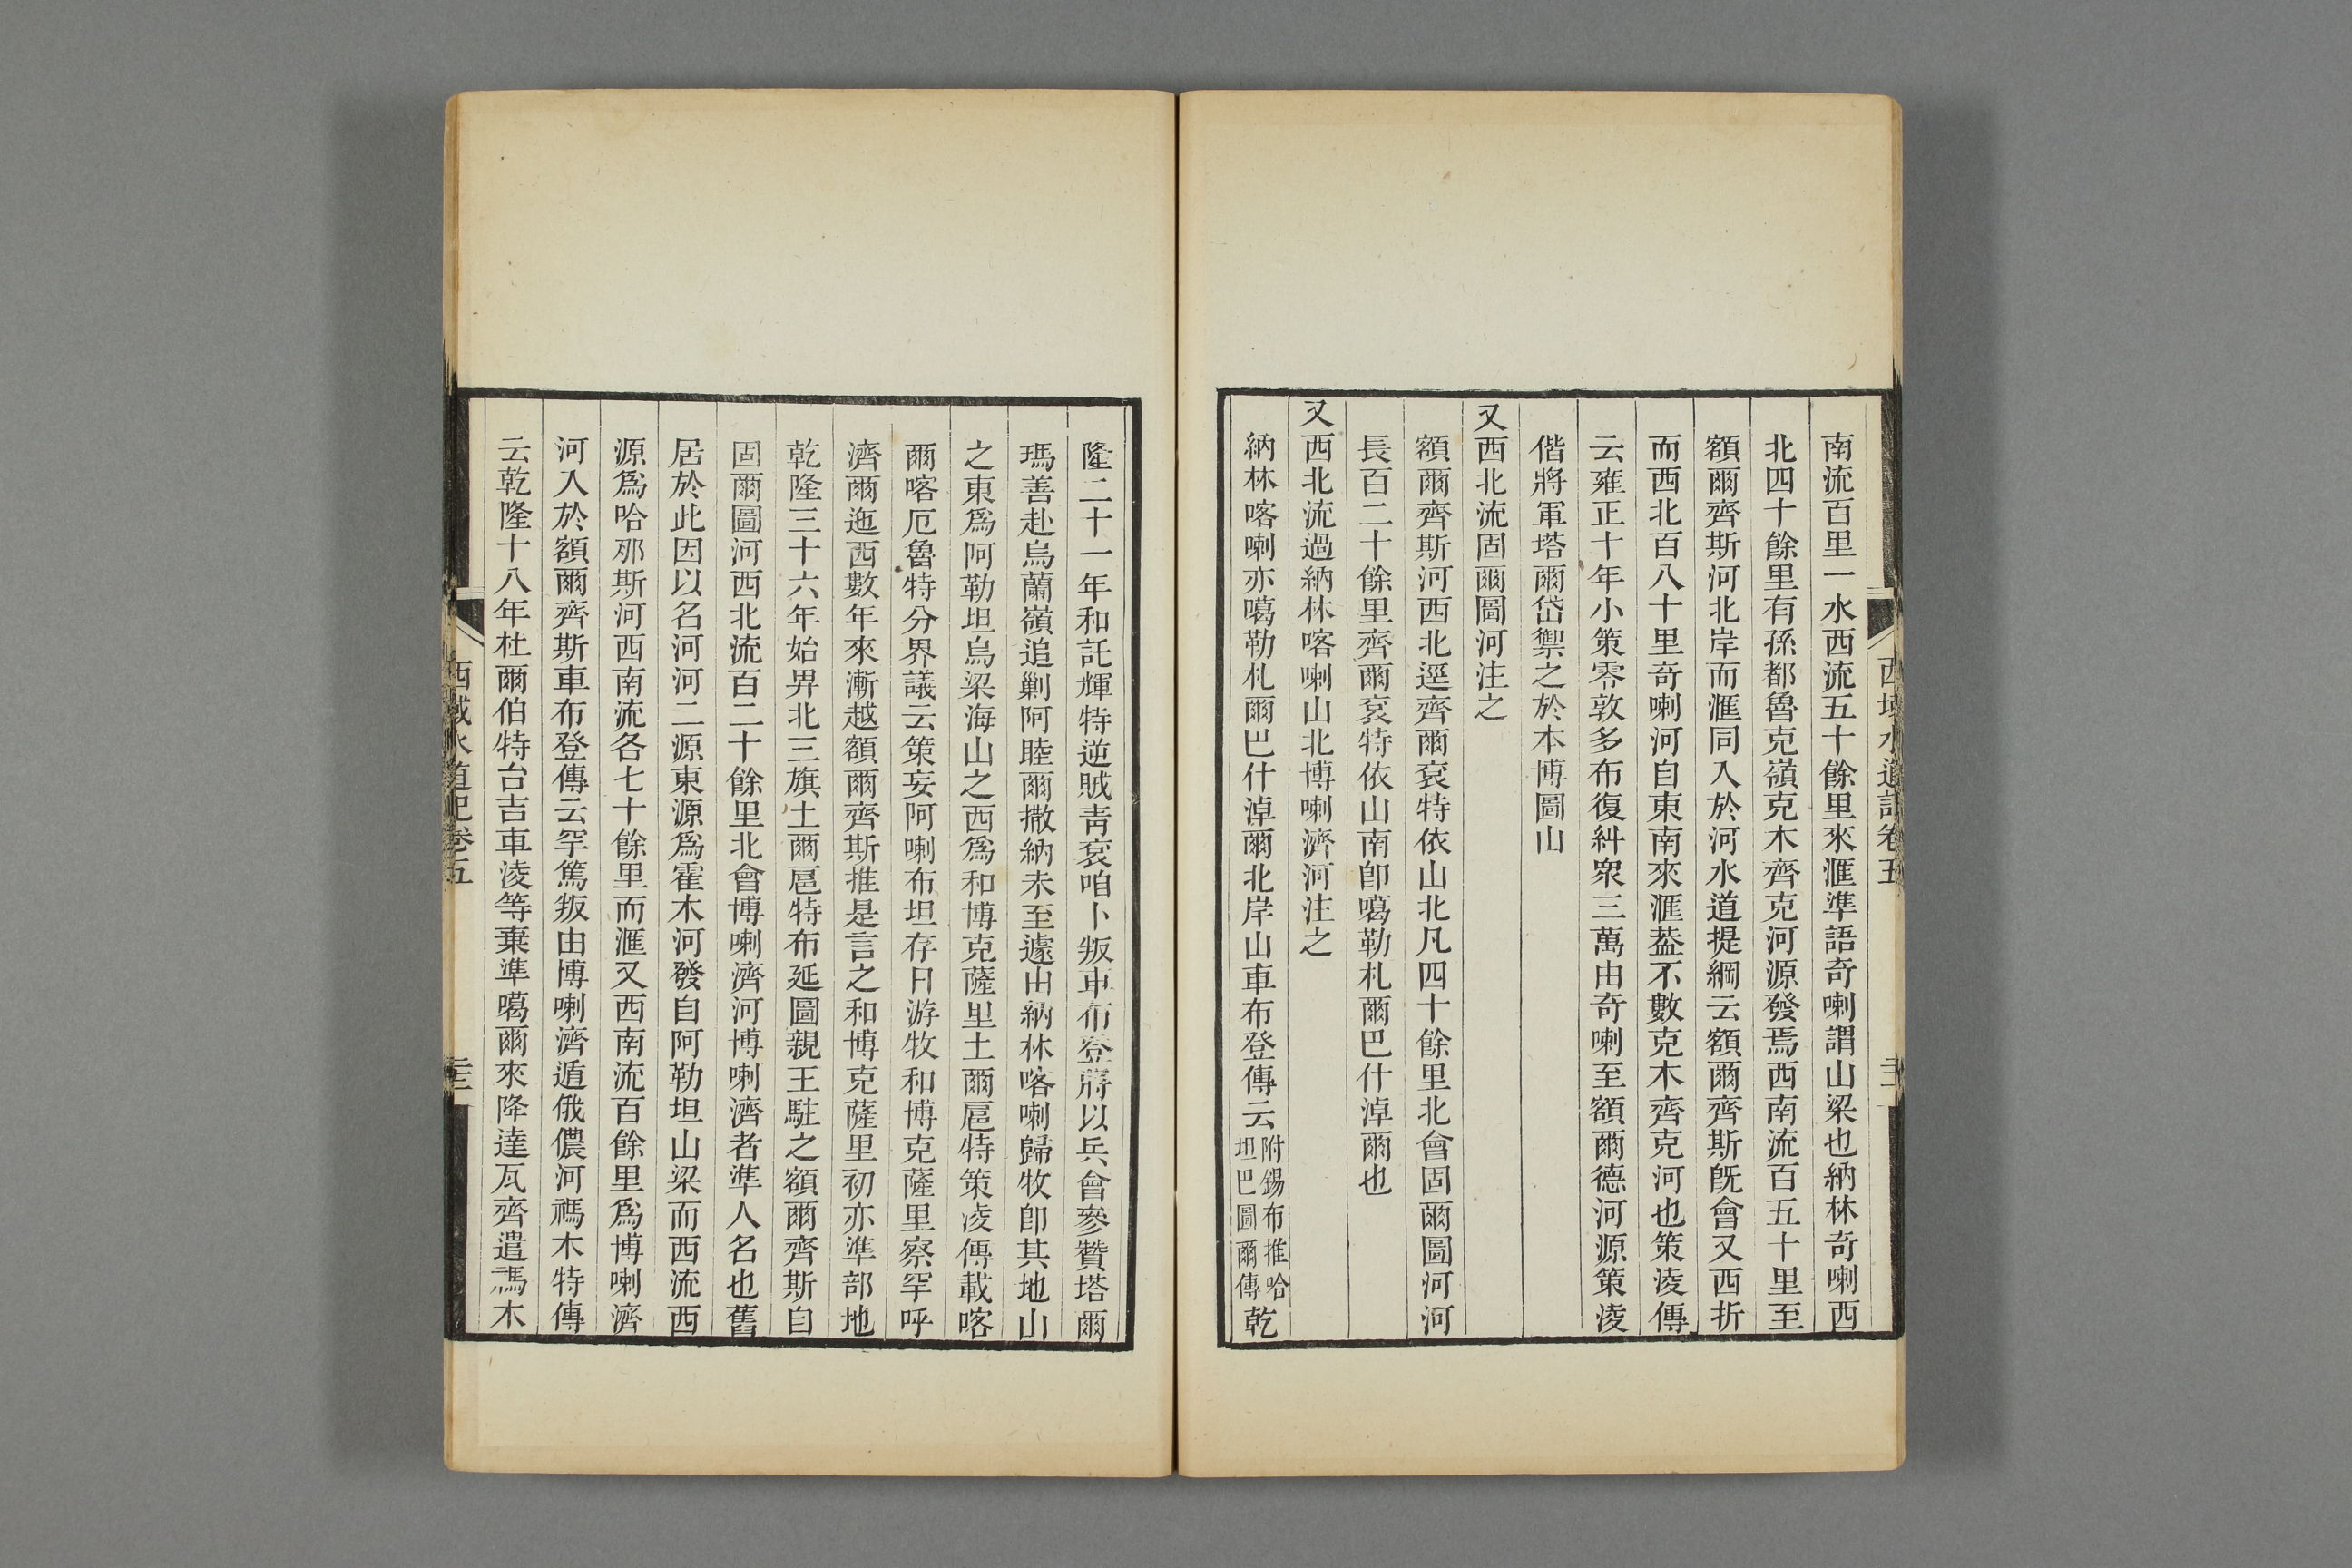 南流百里一水西流五十餘里來滙準語奇喇謂山梁也納林奇喇西
北四十餘里有孫都魯克嶺克木齊克河源發焉西南流百五十里至
額爾齊斯河北岸而滙同入於河水道提綱云額爾齊斯旣會又西折
而西北百八十里奇喇河自東南來滙葢不數克木齊克河也策淩傳
云雍正十年小策零敦多布復糾衆三萬由奇喇至額爾德河源策淩
偕將軍塔爾岱禦之於本博圖山
又西北流固爾圖河注之
額爾齊斯河西北逕齊爾袞特依山北凡四十餘里北會固爾圖河河
長百二十餘里齊爾袞特依山南卽噶勒札爾巴什淖爾也
又西北流過納林喀喇山北博喇濟河注之
納林喀喇亦噶勒札爾巴什淖爾北岸山車布登傳云附錫布推哈坦巴圖爾傳乾
西域水道記卷五
隆二十一年和託輝特逆賊靑袞咱卜叛車布登將以兵會參贊塔爾
瑪善赴烏蘭嶺追剿阿睦爾撒納未至遽由納林喀喇歸牧卽其地山
之東爲阿勒坦烏梁海山之西爲和博克薩里土爾扈特策淩傳載喀
爾喀厄魯特分界議云策妄阿喇布坦存日游牧和博克薩里察罕呼
濟爾迤西數年來漸越額爾齊斯推是言之和博克薩里初亦準部地
乾隆三十六年始畀北三旗土爾扈特布延圖親王駐之額爾齊斯自
固爾圖河西北流百二十餘里北會博喇濟河博喇濟者準人名也舊
居於此因以名河河二源東源爲霍木河發自阿勒坦山梁而西流西
源爲哈那斯河西南流各七十餘里而滙又西南流百餘里爲博喇濟
河入於額爾齊斯車布登傳云罕篤叛由博喇濟遁俄儂河禡木特傳
云乾隆十八年杜爾伯特台吉車淩等棄準噶爾來降達瓦齊遣禡木
西域水道記卷五